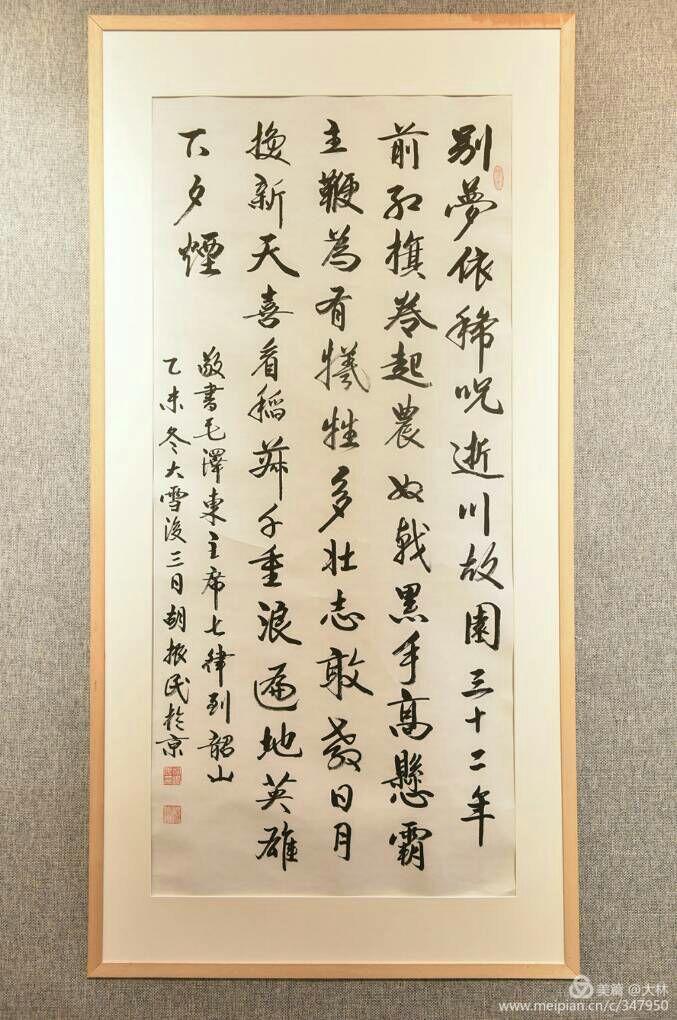 别夢依稀咒逝川故園三十二年
前红旗卷起農奴戟黑手高懸霸
主鞭為有犧牲多壮志敢教日月
換新天喜看稻菽千重浪遍地英雄
下夕煙
敬書毛澤東主席七律到韶山
乙未冬大雪後三日胡振民於京
美篇 @大林
www.meipian.cn/c/347950